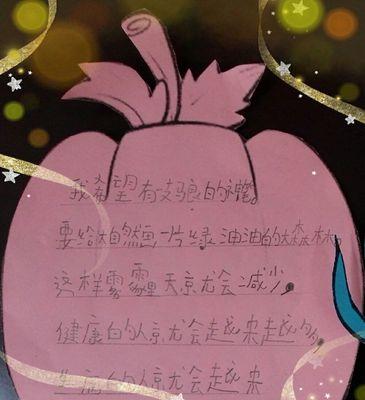 我希望有一支马良的神笔。
要给大自然画一片绿油油的大森林。
这样雾霾天就会减少。
健康的人就会越来越多。
生病的人就会越来